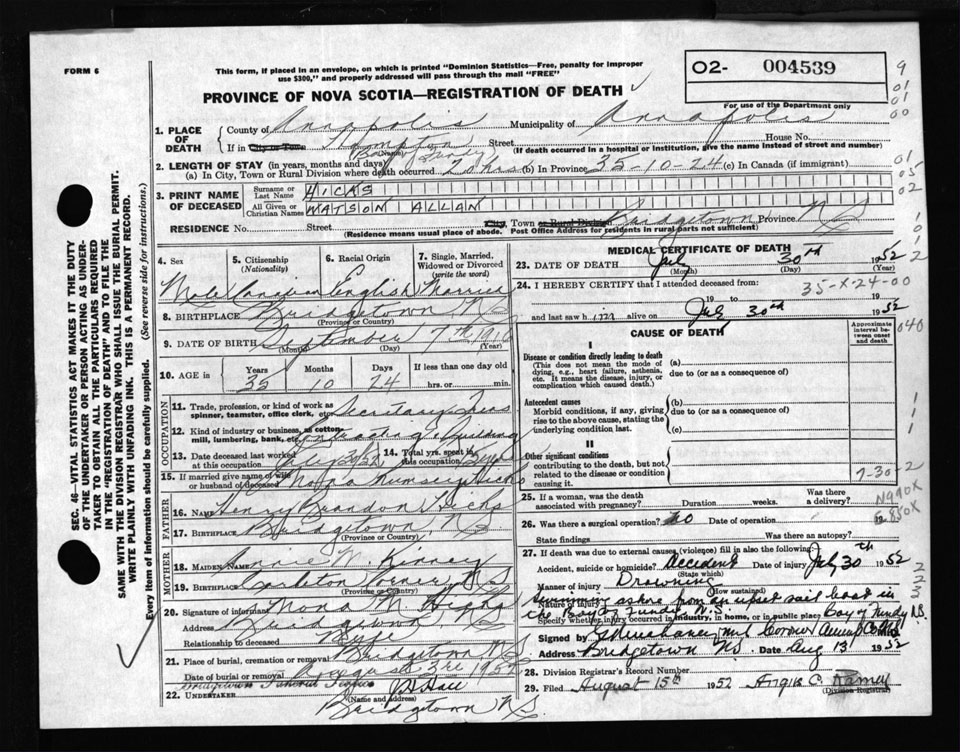 FORM 6
This form, if placed in an envelope, on which is printed "Dominion Statistics—Free, penalty for improper
use $300," and properly addressed will pass through the mail "FREE"
PROVINCE OF NOVA SCOTIA—REGISTRATION OF DEATH
02- 004539
For use of the Department only
1. PLACE OF DEATH
County of Annapolis Municipality of Annapolis
If in City or Town Hampton Street House No.
(Name) (If death occurred in a hospital or institution, give the name instead of street and number)
Bay Fundy
2. LENGTH OF STAY (in years, months and days)
(a) In City, Town or Rural Division where death occurred 20 hrs (b) In Province 35-10-24 (c) In Canada (if immigrant)
3. PRINT NAME OF DECEASED
Surname or Last Name HICKS
All Given or Christian Names WATSON ALLAN
RESIDENCE No. Street City, Town or Rural Division Bridgetown Province NS
(Residence means usual place of abode. Post Office Address for residents in rural parts not sufficient)
4. Sex Male
5. Citizenship (Nationality) Canadian
6. Racial Origin English
7. Single, Married, Widowed or Divorced (write the word) Married
8. BIRTHPLACE Bridgetown NS
(Province or Country)
9. DATE OF BIRTH September 7th 1916
(Month) (Day) (Year)
10. AGE in Years 35 Months 10 Days 24 If less than one day old hrs. or min.
OCCUPATION
11. Trade, profession, or kind of work as spinner, teamster, office clerk, etc. Secretary Treas
12. Kind of industry or business, as cotton mill, lumbering, bank, etc. Contracting & Building
13. Date deceased last worked at this occupation July 30/52
14. Total yrs. spent in this occupation
15. If married give name of wife or husband of deceased Mona Hicks
FATHER
16. Name Henry Brandon Hicks
17. Birthplace Bridgetown NS
(Province or Country)
MOTHER
18. Maiden Name Annie W. Kinney
19. Birthplace Carleton Corner NS
(Province or Country)
20. Signature of informant Mona M Hicks
Address Bridgetown NS
Relationship to deceased Wife
21. Place of burial, cremation or removal Bridgetown NS
Date of burial or removal August 3rd 1952
Bridgetown Funeral
22. UNDERTAKER
(Name and Address)
Bridgetown NS.
MEDICAL CERTIFICATE OF DEATH
23. DATE OF DEATH July 30th 1952
(Month) (Day) (Year)
24. I HEREBY CERTIFY that I attended deceased from:
35-X-24-00
19 to July 30th 1952
and last saw h alive on 19
CAUSE OF DEATH
Approximate interval between onset and death
I
Disease or condition directly leading to death
(This does not mean the mode of dying, e.g., heart failure, asthenia, etc. It means the disease, injury, or complication which caused death.)
(a)
due to (or as a consequence of)
Antecedent causes
Morbid conditions, if any, giving rise to the above cause, stating the underlying condition last.
(b)
due to (or as a consequence of)
(c)
II
Other significant conditions
contributing to the death, but not related to the disease or condition causing it.
7-30-2
25. If a woman, was the death associated with pregnancy? Duration weeks. Was there a delivery?
N990X
E850X
26. Was there surgical operation? No Date of operation 19
State findings Was there an autopsy?
27. If death was due to external causes (violence) fill in also the following:
Accident, suicide or homicide? Accident Date of injury July 30th 1952
(State which)
Manner of injury Drowning
(How sustained)
Nature of injury Swimming ashore from an upset sail boat in
the Bay of Fundy N.S.
Specify whether injury occurred in industry, in home, or in public place Bay of Fundy N.S.
Signed by
Address Bridgetown NS. Date Aug 13 1952
28. Division Registrar's Record Number
29. Filed August 15th 1952 Angus C. Ramey
(Division Registrar)
SEC. 46—VITAL STATISTICS ACT MAKES IT THE DUTY
OF THE UNDERTAKER OR PERSON ACTING AS UNDERTAKER TO OBTAIN ALL THE PARTICULARS REQUIRED
IN THE "REGISTRATION OF DEATH" AND TO FILE THE
SAME WITH THE DIVISION REGISTRAR WHO SHALL ISSUE THE BURIAL PERMIT.
WRITE PLAINLY WITH UNFADING INK. THIS IS A PERMANENT RECORD.
Every item of information should be carefully supplied. (See reverse side for instructions.)